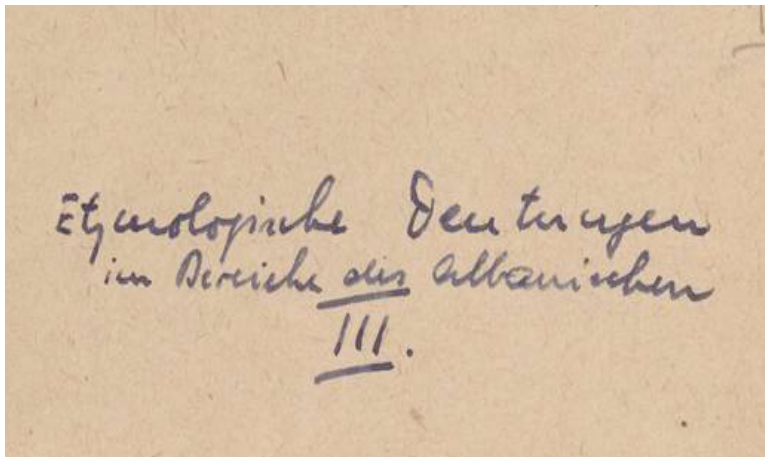 Etymologische Deutungen
im Bereiche des Albanischen
III.